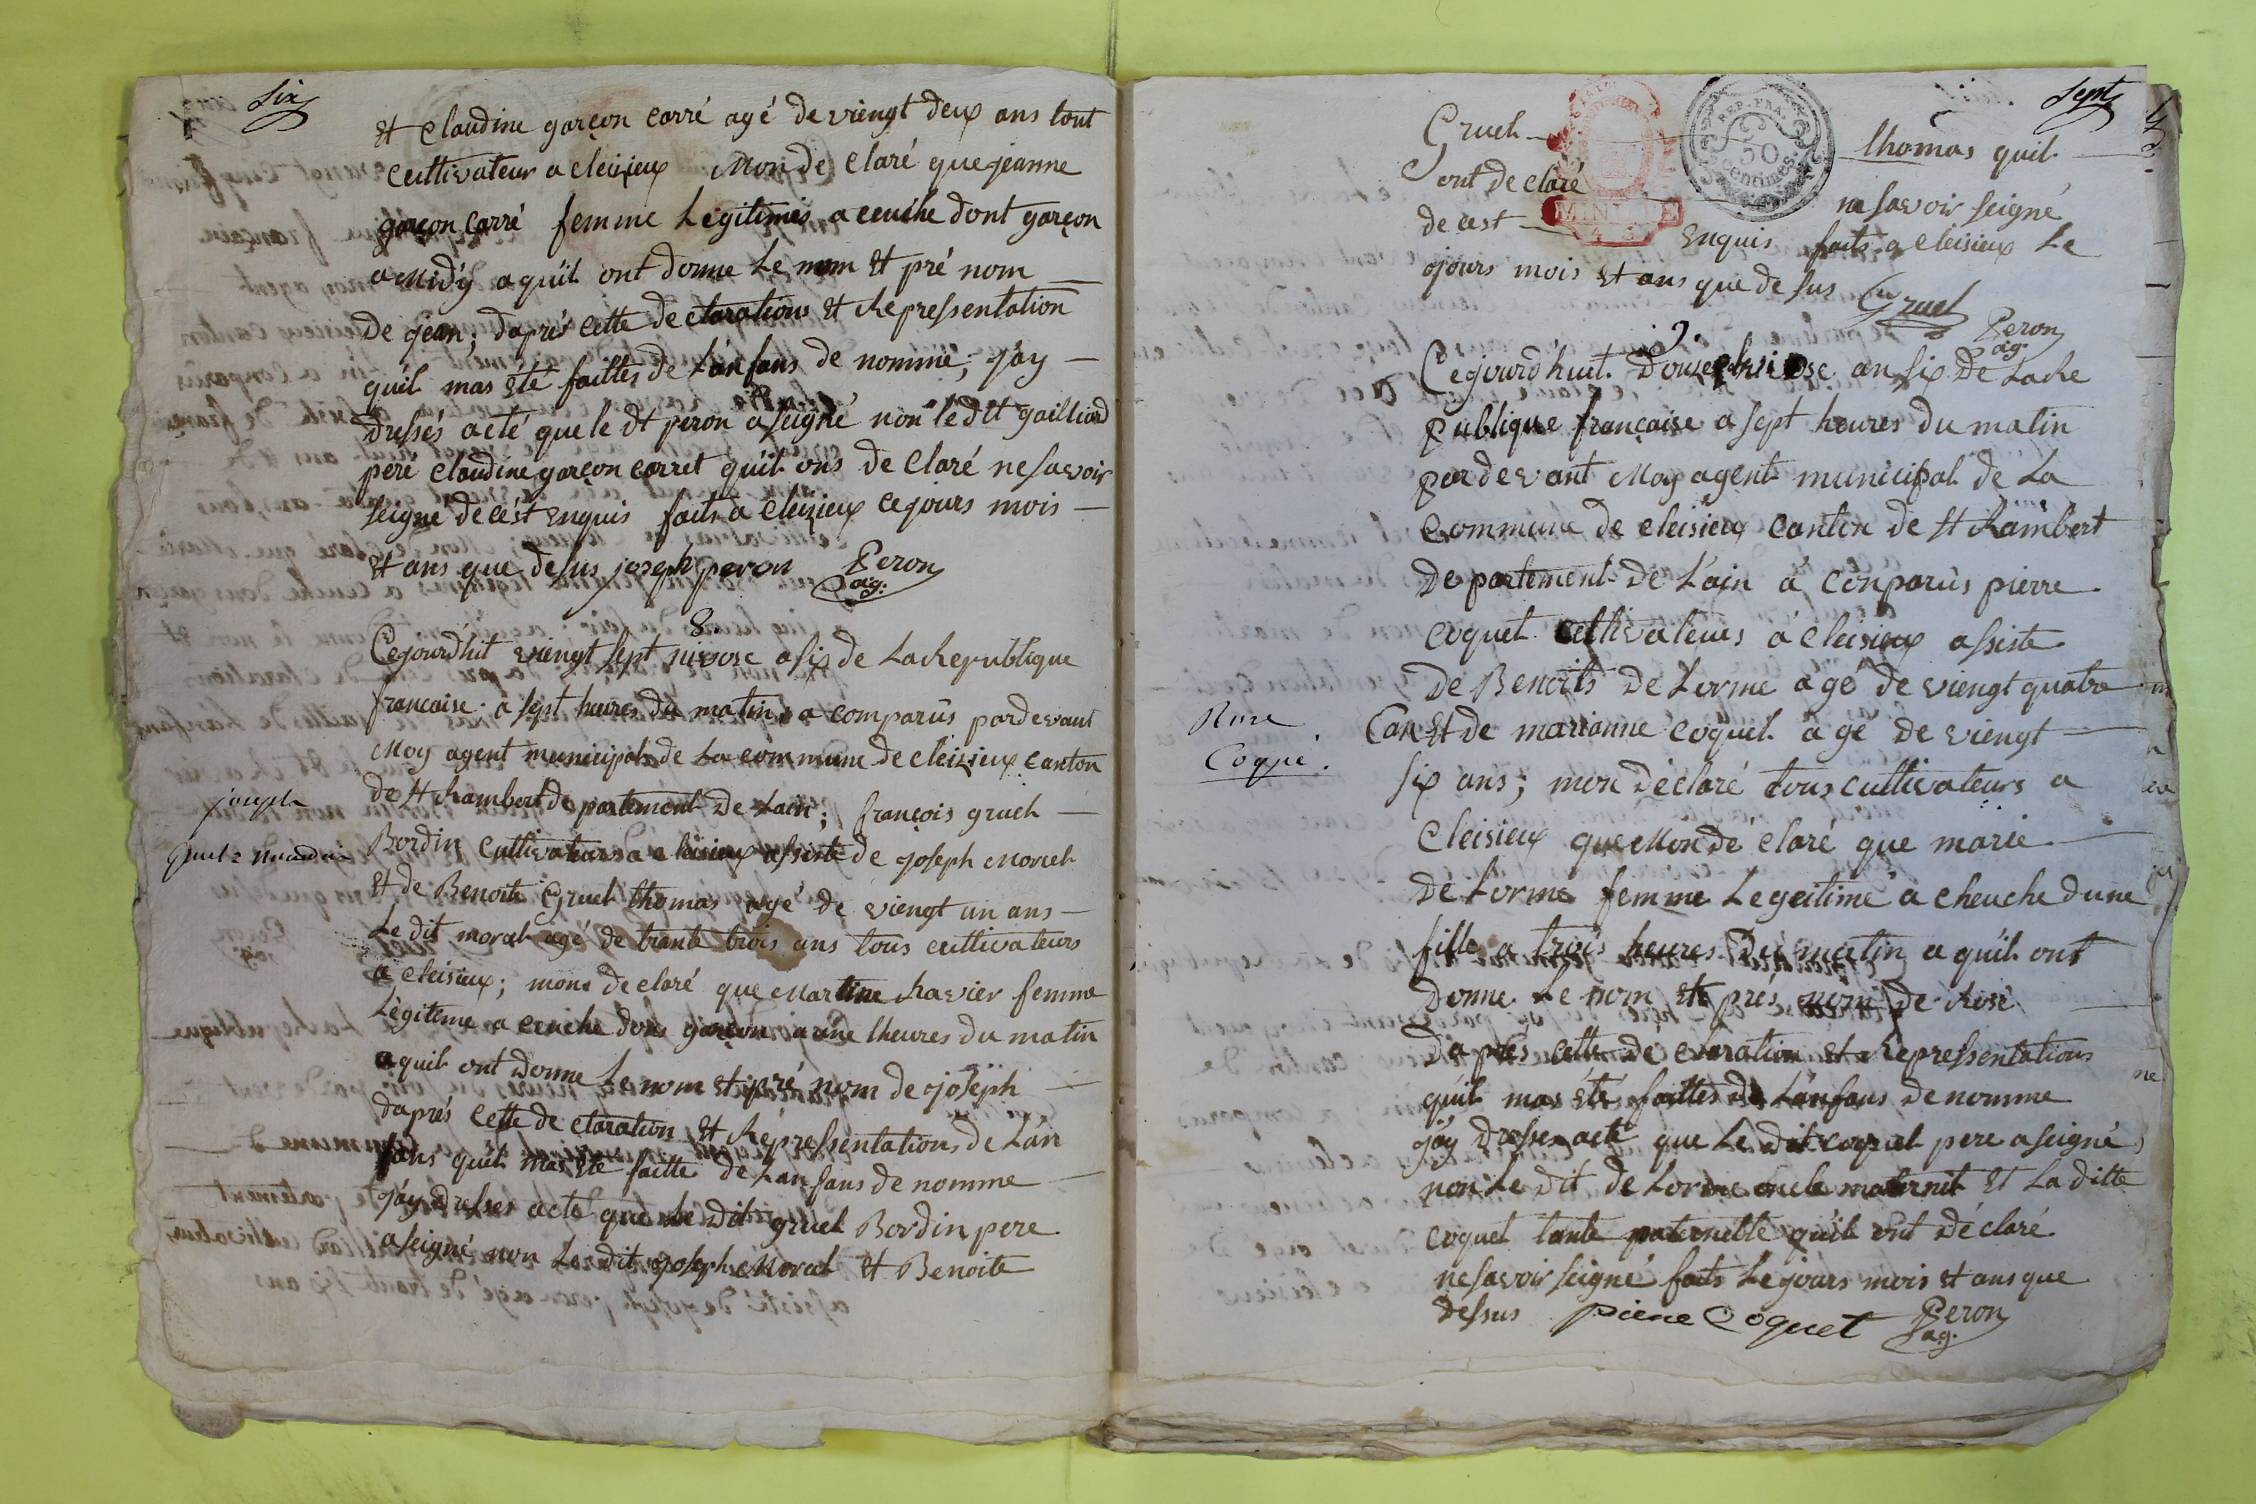 Six
Et Claudine garçon carré agé de viengt deux ans tout
cultivateur a cleizieux Mon de claré que jeanne
garçon carré femme Legitimes a ceuche dont garçon
a Midÿ a quil ont donne Le nom Et pré nom
De jean; daprés cette declarations Et Representation
quil mas été faittes de Lanfans de nomme; j'ay
Dressés acté que le dt peron a seigné non le dit gailliard
peré claudine garçon carret quil ons de claré ne savoir
seigné de cést enquis faits a cleizieux ce jours mois
Et ans que desus joseph peron Peron
ag.
8.
Cejourdhit viengt sept nivose a six de La Republique
francaise a sept heures du matin a comparûs pardevant
Moy agent municipal de La commune de cleizieux Canton
joseph
de St Rambert de partement De Lain; françois gruel
Bordin cultivateurs a cleisieux assisté de joseph Morel
Et de Benoite Gruel thomas agé de viengt un ans
Le dit morel agé de trante trois ans tous cultivateurs
a cleisieux; mons de claré que Martine Ravier femme
Légiteme a ceuche dons garçon a une lheures du matin
a quil ont Donne Le nom Et pré nom de joseph
daprés cette de claration Et Répressentations de Lan
fans quil mas éte faitte de Lanfans de nomme
j'ay dresses acte que Le Dit gruel Bordin pere
a seigné non Le dit joseph Moral Et Benoite
Sept
Gruel thomas quil
REP. FRA.
50
Centimes.
ont de claré ne savoir seigné
de cest enquis faits a cleisieux Le
jours mois Et ans que de sus Gruel
Peron
ag.
9.
Cejourd'huit Douze pluviose an six De La Re
publique française a sept heures du matin
pardevant Moy agent municipal de La
Commune de cleisieux Canton de St Rambert
De partement De L'ain á conparûs pierre
coquet cultivateurs á cleisieux assiste
De Benoits De Lorme agé de viengt quatre
Rose
Coqué.
Can Et de marianne coquet agé de viengt
six ans; mon déclaré tous cultivateurs a
Cleisieux que Mon dé claré que marie
De Lorme femme Legeitime a cheuche dune
fille a trois heures Du matin a quil ont
Donne Le nom Et prés nom de Rose
Daprés cette de claration et a Repressentations
quil mas été faittes de Lanfans de nomme
j'ay dresser acté que Le dit coquet pere a seigné
non Le Dit de Lorme oncle maternit Et La ditte
coquet tante paternelle quil ont déclaré
ne savoir seigné faits Le jours mois et ans que
dessus pierre Coquet Peron
ag.